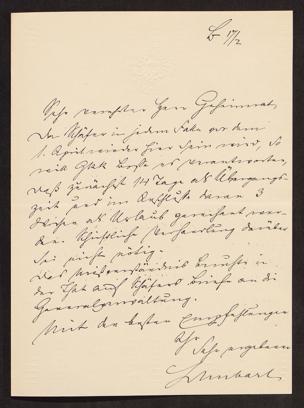 B 17/2
Sehr verehrter Herr Geheimrat,
Da Schäfer in jedem Falle vor dem
1. April wieder hier sein wird, so
will Exc. Bosse es verantworten,
daß zunächst 14 Tage als Übergangs-
zeit und im Anschluß daran 3
Wochen als Urlaub gerechnet wer-
den. Schriftliche Verhandlung darüber
sei nicht nötig.
Das Mißverständnis beruhte in
der That auf Schäfers Briefe an die
Generalverwaltung.
Mit den besten Empfehlungen
Ihr
Sehr ergebener